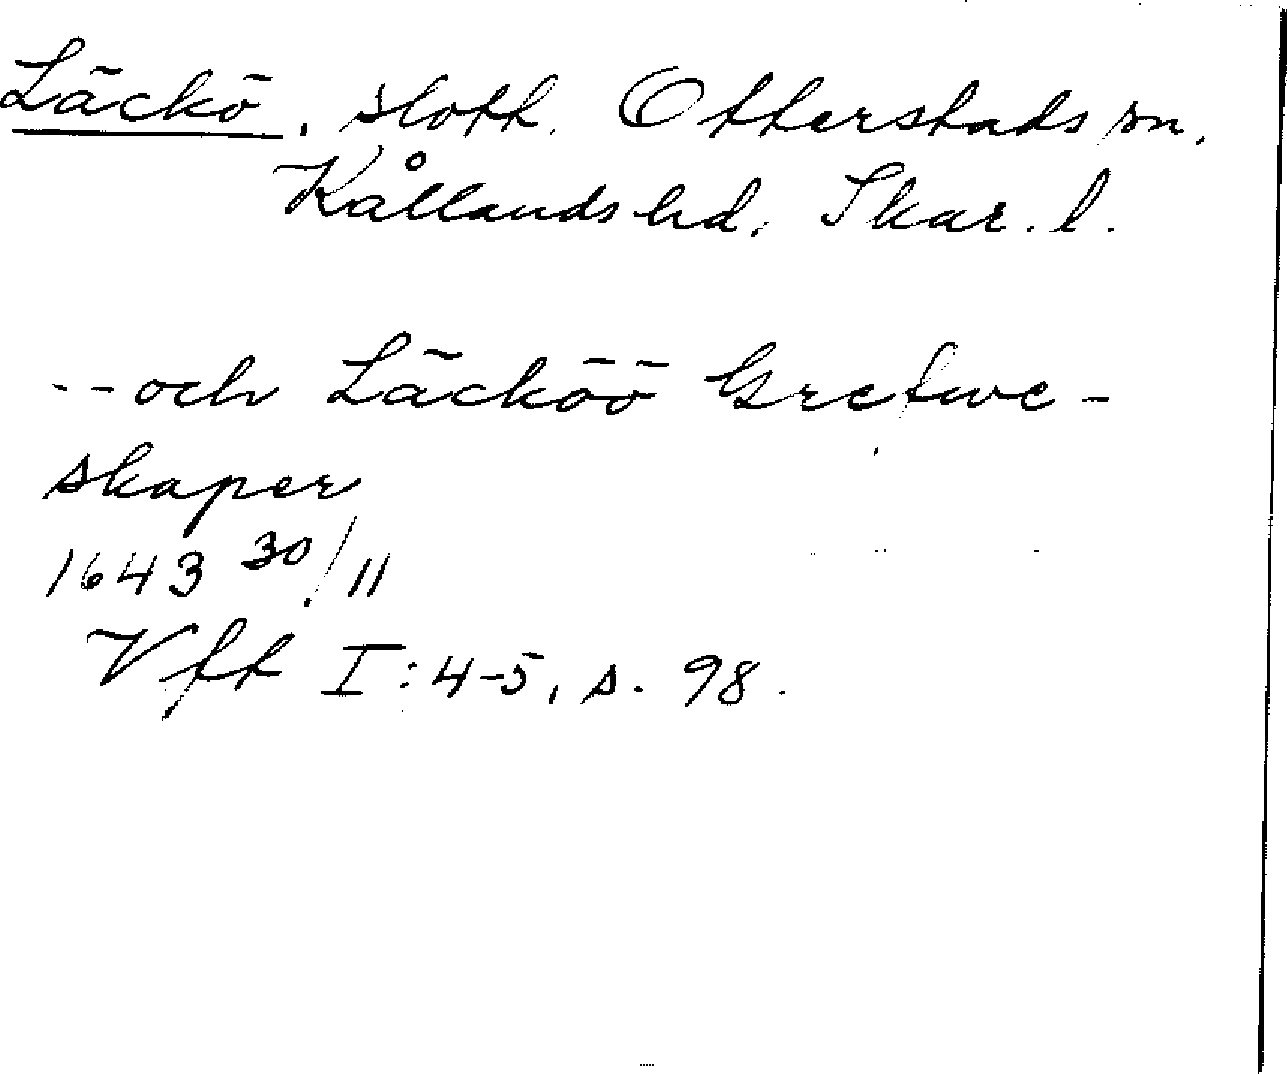 Läckö, slott. Otterstads sn.
Kållands hd. Skar. l.
-- och Läcköö Grefwe-
skaper
1643 30/11
Vft I:4-5, s. 98.